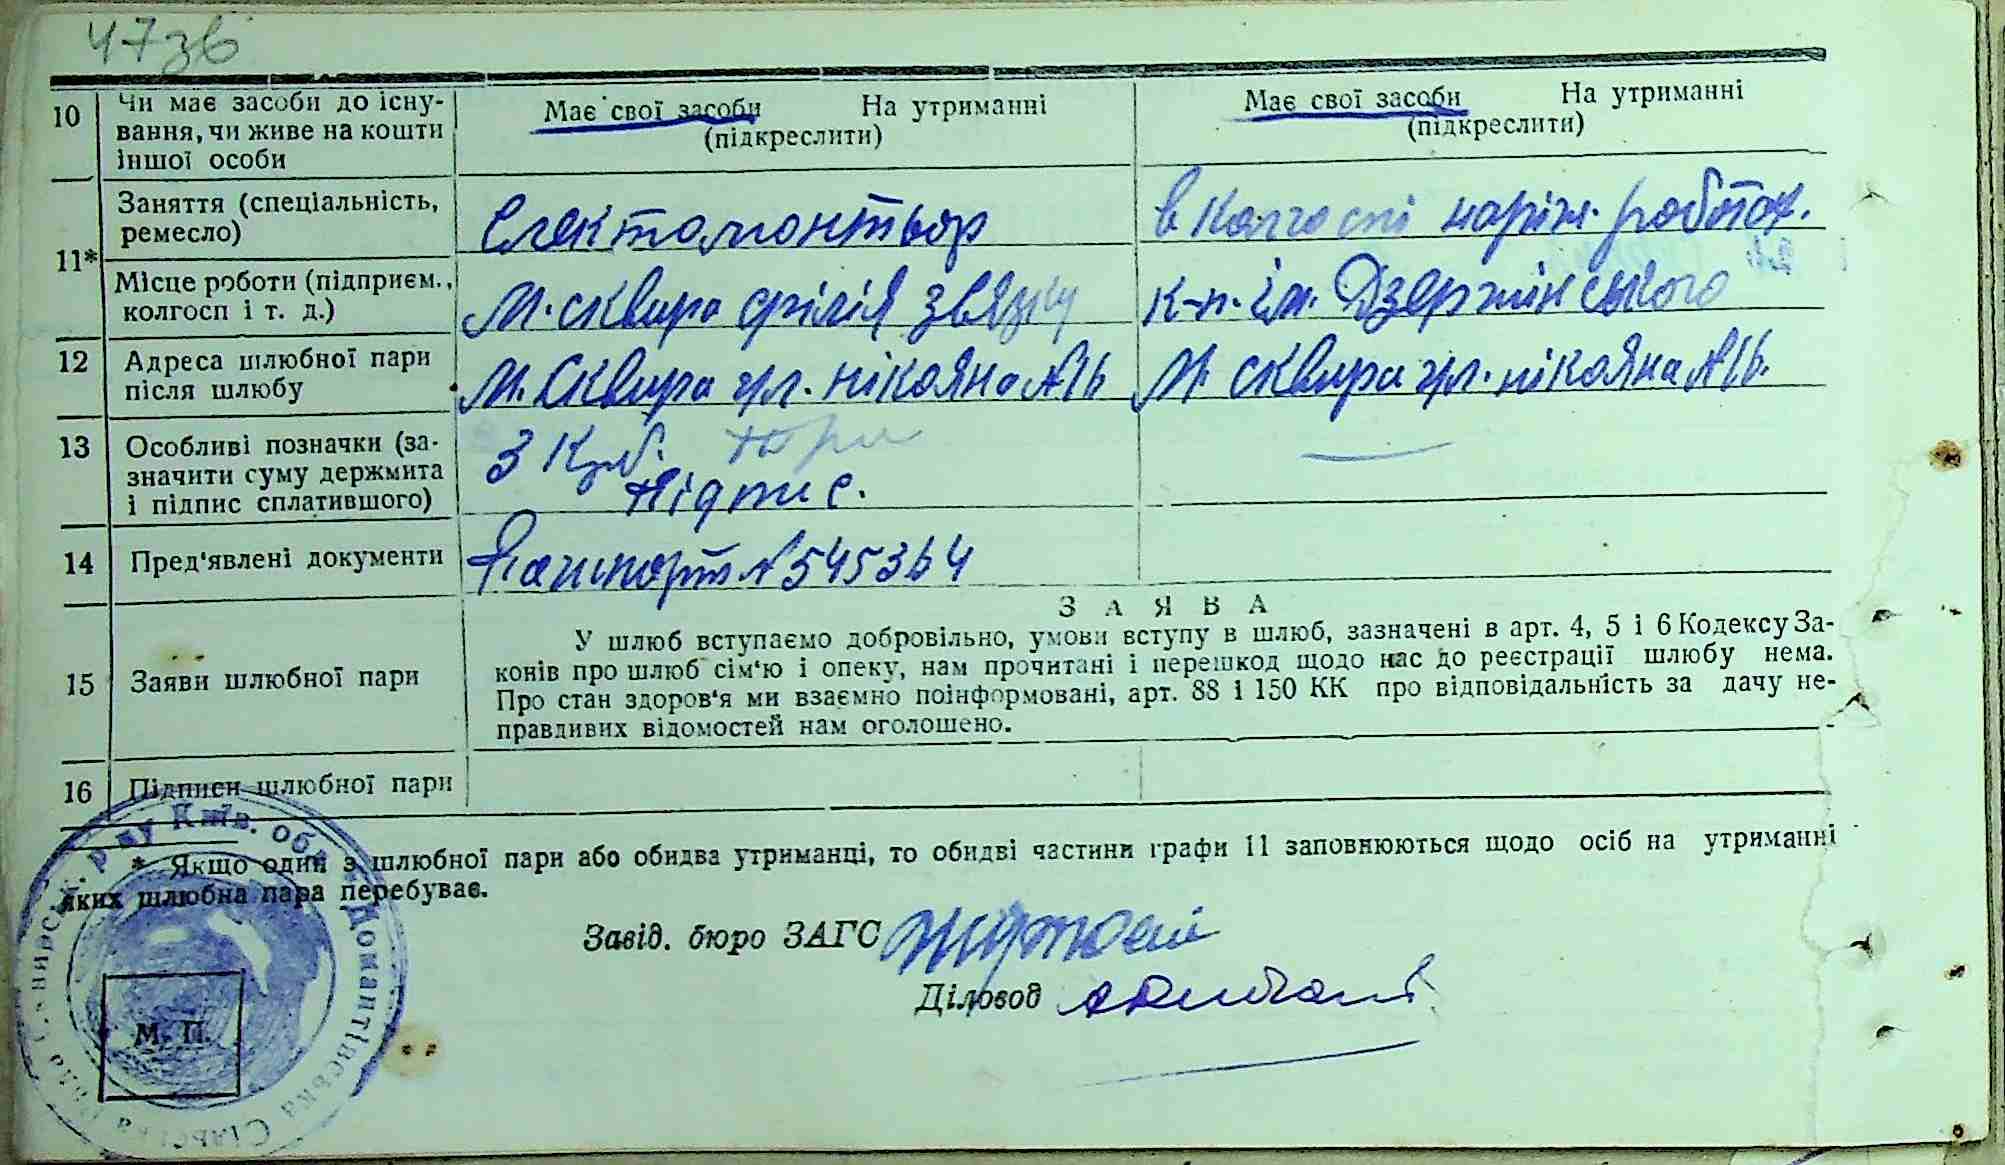 47зв
10 Чи має засоби до існу-
вання, чи живе на кошти
іншої особи
Має свої засоби На утриманні
(підкреслити)
Має свої засоби На утриманні
(підкреслити)
11*
Заняття (спеціальність,
ремесло)
Електомонтьор
в колгоспі норіж. робот
Місце роботи (підприєм.,
колгосп і т. д.)
М. сквира філія звязку
к-п. ім. Дзержінського
12 Адреса шлюбної пари
після шлюбу
М. Сквира ул. нікояна №16
М сквира ул. нікояна №16.
13 Особливі позначки (за-
значити суму держмита
і підпис сплатившого)
3 крб.
Підпис.
14 Пред'явлені документи
Пашпорт №545364
15 Заяви шлюбної пари
ЗАЯВА
У шлюб вступаємо добровільно, умови вступу в шлюб, зазначені в арт. 4, 5 і 6 Кодексу За-
конів про шлюб сім'ю і опеку, нам прочитані і перешкод щодо нас до реєстрації шлюбу нема.
Про стан здоров'я ми взаємно поінформовані, арт. 88 і 150 КК про відповідальність за дачу не-
правдивих відомостей нам оголошено.
16 Підписи шлюбної пари
* Якщо один з шлюбної пари або обидва утриманці, то обидві частини графи 11 заповнюються щодо осіб на утриманні
яких шлюбна пара перебуває.
Завід. бюро ЗАГС
Діловод
М. П.
р-ну Київ. обл. Домантівська Сільська Рада